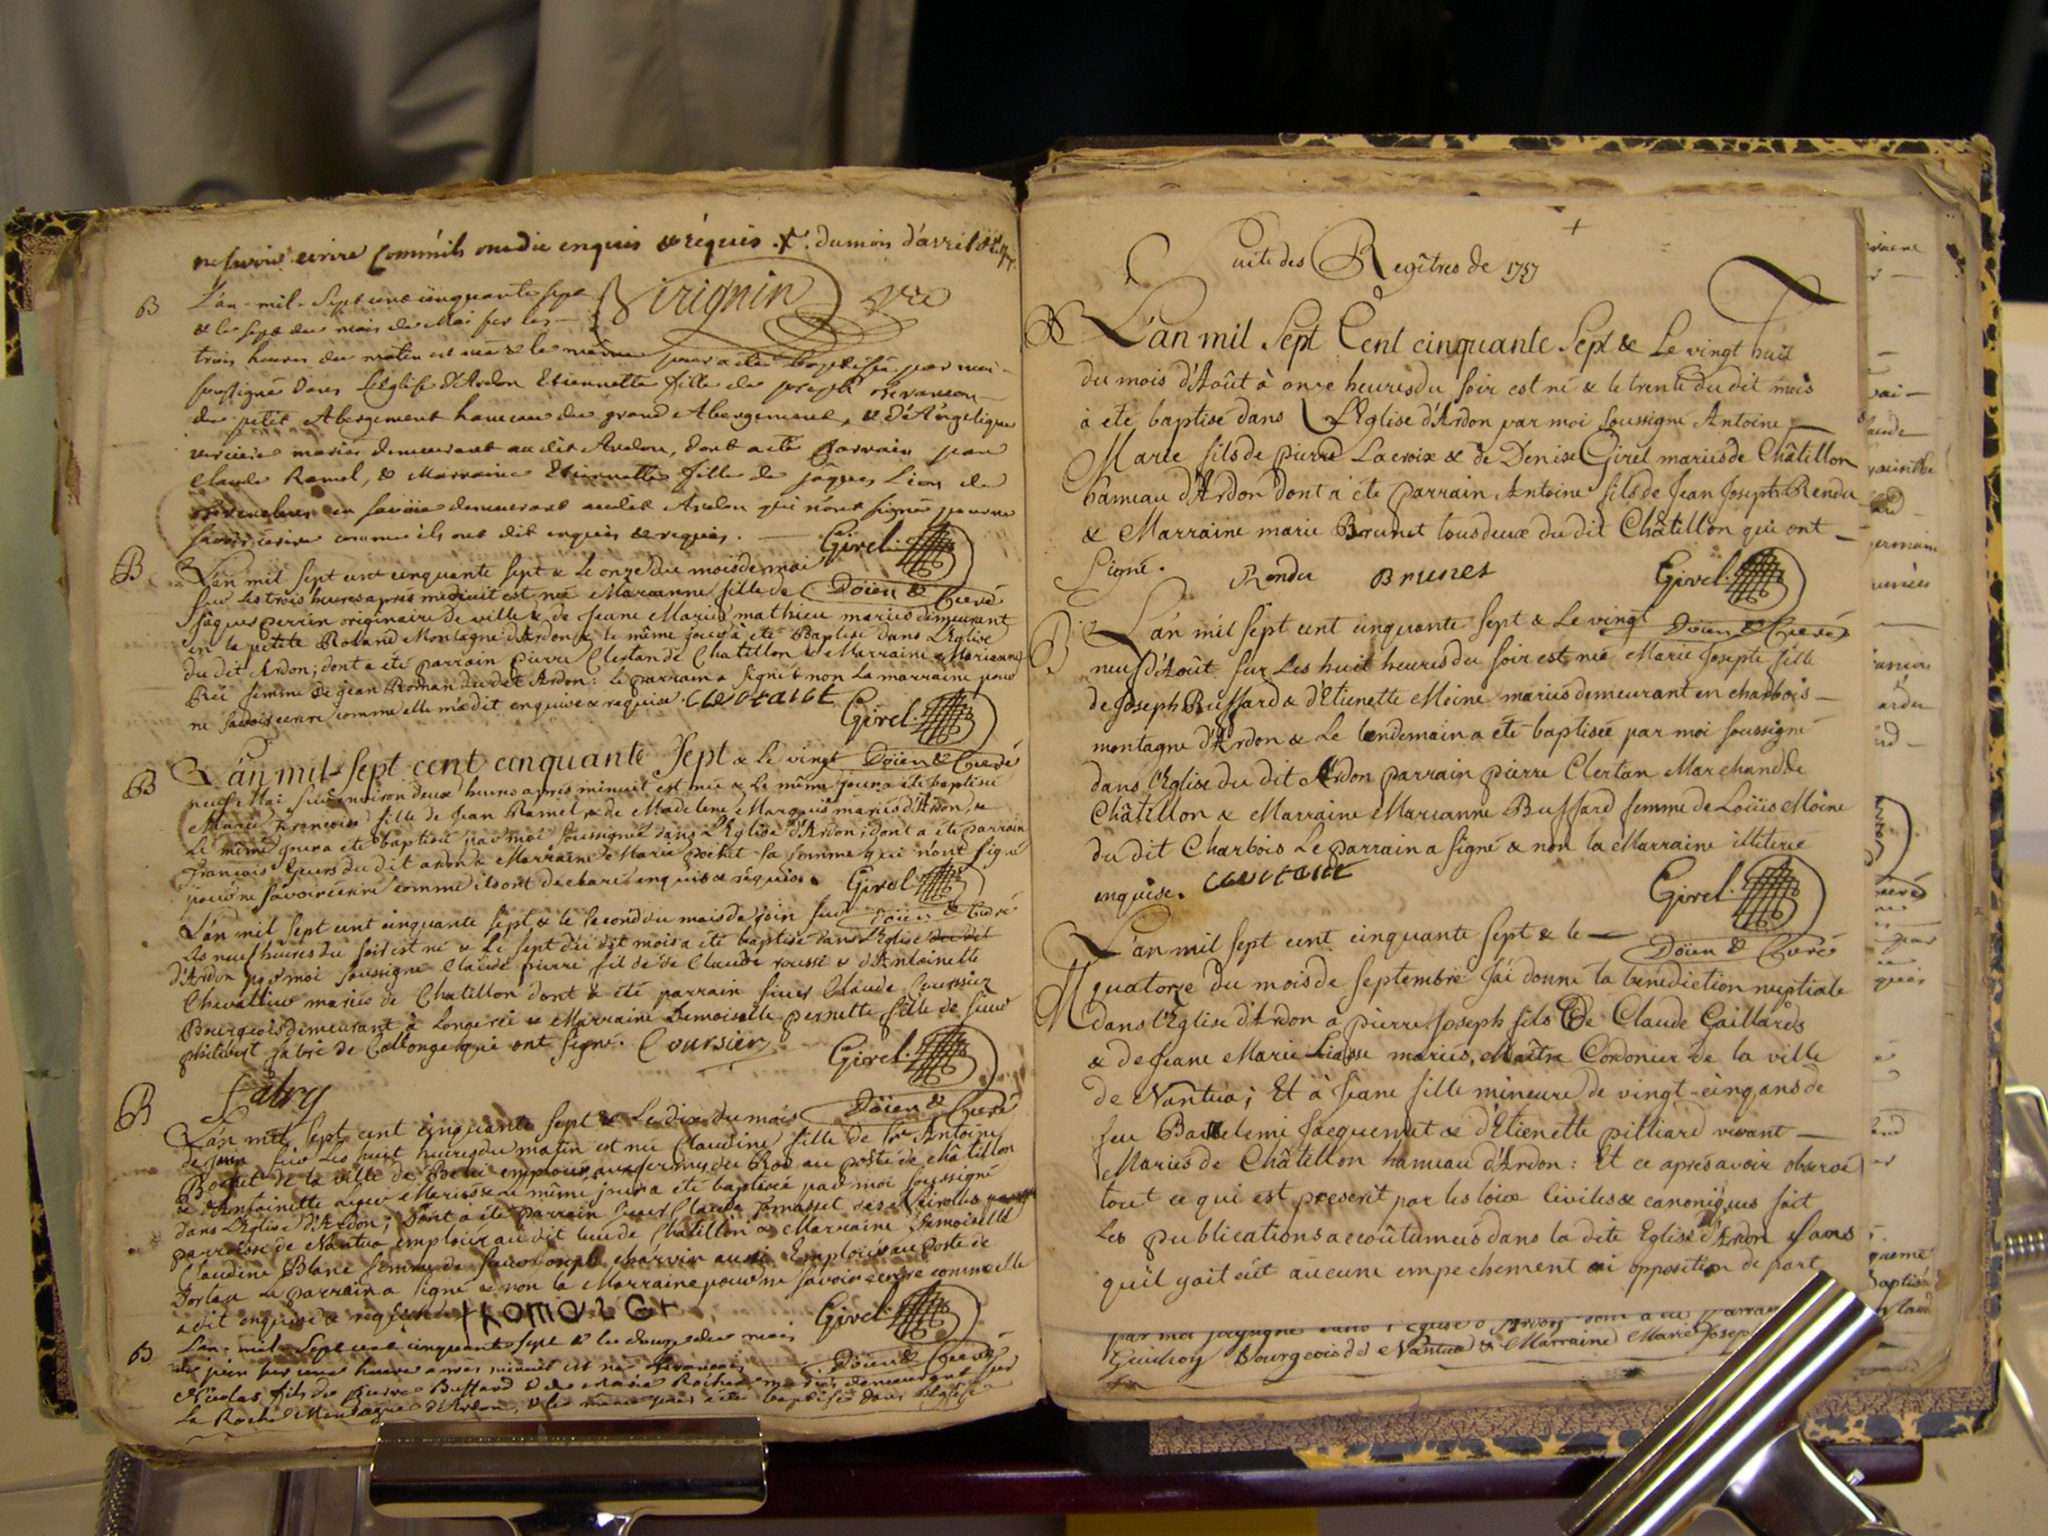 ne savoir ecrire comm'ils ont dit enquis & requis. du mois d'avril
B L'an mil Sept cent cinquante sept
Sirignin Vre
& le sept du mois de Mai sur les
trois heures du matin est née & le même jour a été baptisée par moi
soussigné dans L'Eglise d'Ardon Etiennette fille de joseph
du petit Abergement hameau du grand Abergement, & d'Angelique
mariés demeurant au dit Ardon, dont a été Parrain jean
Claude Ramel, & Marraine Etiennette fille de jâques Lion de
en savoie demeurant audit Ardon qui n'ont signé pour ne
savoir ecrire comme ils ont dit enquis & requis. Girel.
B L'an mil sept cent cinquante sept & Le onze du mois de mai
Doïen & Curé
sur Les trois heures après midi est née Marianne fille de
jâques perrin originaire de ville & de Jeane Marie mathieu mariés demeurant
en la petite Roland Montagne d'Ardon & le même jour à été Baptisé dans L'Eglise
du dit Ardon; dont a été parrain pierre Clertan de Chatillon & Marraine Marianne
femme de jean Roman du dit Ardon: Le parrain a Signé & non La marraine pour
ne savoir ecrire comme elle m'a dit enquise & requise. Clertant Girel.
B L'an mil Sept cent cinquante Sept & Le vingt Doïen & Curé
neuf Mai sur environ deux heures après minuit est née & Le même jour a été baptisé
Marie françoise fille de Jean Ramel & de Madeleine Marquis mariés d'Ardon, &
Le même jour a été baptisée par moi soussigné dans L'Eglise d'Ardon; dont a été parrain
françois du dit ardon & Marraine Marie pochet sa femme qui n'ont signé
pour ne savoir ecrire comme ils ont declaré enquis & requis. Girel
L'an mil sept cent cinquante sept & le second du mois de join sur Doïen & Curé
Les neuf heures du soir est né & Le sept du dit mois a été baptisé dans L'Eglise du dit
d'Ardon par moi soussigné Claude pierre fils de Claude roussi & d'Antoinette
Chevallier mariés de Chatillon dont à été parrain sieur Claude Coursier
Bourgeois demeurant à Longerei & Marraine Demoiselle pernette fille de sieur
philibert fabri de Collonge qui ont signé. Coursier Girel.
fabry
B L'an mil sept cent cinquante sept & Le dix du mois Doïen & Curé
de join sur Les huit heures du matin est née Claudine fille de Sr Antoine
Bochet de la ville de emploié aux fermes du Roi au poste de châtillon
& d'Antoinette mariés & le même jour a été baptisée par moi soussigné
dans L'Eglise d'Ardon; dont a été parrain sieur Claude jomasset
parroisse de Nantua emploié au dit lieu de Chatillon & Marraine Demoiselle
Claudine Blanc femme de sieur Joseph charvin aussi Emploié au poste de
Dorlan Le parrain a signé & non la Marraine pour ne savoir ecrire comme elle
a dit enquise & requise. Girel.
B L'an mil Sept cent cinquante sept & le douze du mois Doïen & Curé
de join sur une heure après minuit est né françois
Nicolas fils de pierre Buffard & de Marie Rochet mariés demeurant sur
La Roche Montagne d'Ardon, & le même jour a été baptisé dans L'Eglise
Suite des Regîtres de 1757
B L'an mil Sept Cent cinquante Sept & Le vingt huit
du mois d'Août à onze heures du soir est né & le trente du dit mois
à eté baptisé dans L'Eglise d'Ardon par moi soussigné Antoine
Marie fils de pierre Lacroix & de Denise Girel mariés de Châtillon
hameau d'Ardon dont a été parrain Antoine fils de Jean Joseph Rendu
& Marraine marie Brunet tous deux du dit Châtillon qui ont
Signé. Rendu Brunet Girel.
B L'an mil sept cent cinquante Sept & Le vingt Doïen & Curé
neuf d'Août sur Les huit heures du soir est née Marie Josepte fille
de Joseph Buffard & d'Etienette Moine mariés demeurant en charbois
montagne d'Ardon & Le lendemain a été baptisée par moi soussigné
dans l'Eglise du dit Ardon parrain pierre Clertan Marchand de
Châtillon & Marraine Marianne Buffard femme de Loüis Moine
du dit Charbois Le parrain a signé & non la Marraine illiterée
enquise. Clertant Girel.
L'an mil sept cent cinquante sept & le Doïen & Curé
M quatorze du mois de septembre J'ai donné la bénédiction nuptiale
dans l'Eglise d'Ardon a pierre Joseph fils De Claude Gaillard
& de Jeane Marie Liasse mariés, Maître Cordonier de la ville
de Nantua; Et à Jeane fille mineure de vingt-cinq ans de
feu Bartelemi Jacquemet & d'Etienette pilliard vivant
Mariés de Châtillon hameau d'Ardon: Et ce après avoir observé
tout ce qui est prescrit par les loix civiles & canoniques fait
Les publications accoûtumées dans la dite Eglise d'Ardon sans
qu'il y ait eût aucune empechement ni opposition de part
par moi soussigné dans l'Eglise d'Ardon dont a été parrain
Bourgeois de Nantua & Marraine Marie Josep